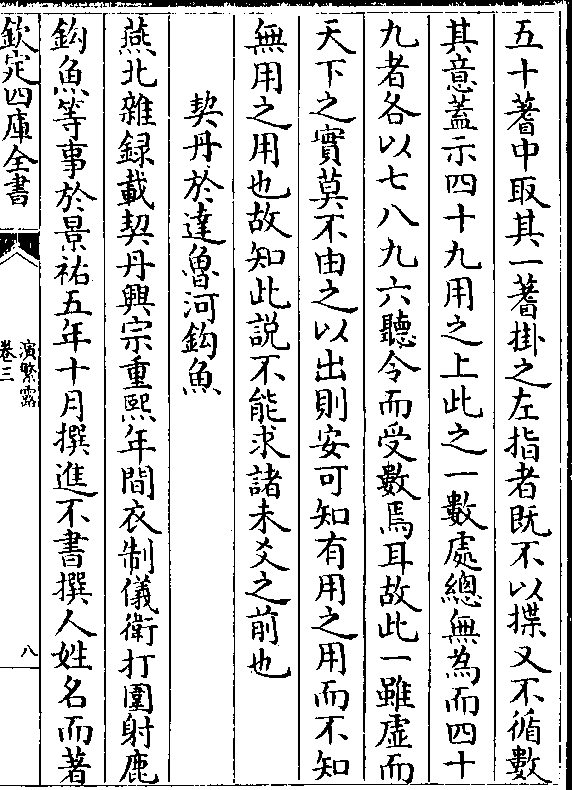 五十蓍中取其一蓍掛之左指者既不以揲又不循數
其意蓋示四十九用之上此之一數處總無為而四十
九者各以七八九六聽令而受數焉耳故此一雖虛而
天下之實莫不由之以出則安可知有用之用而不知
無用之用也故知此説不能求諸未爻之前也
契丹於達魯河鈎魚
燕北雜録載契丹興宗重熙年間衣制儀衛打圍射鹿
鈎魚等事於景祐五年十月撰進不書撰人姓名而著
欽定四庫全書
演繁露
卷三
八